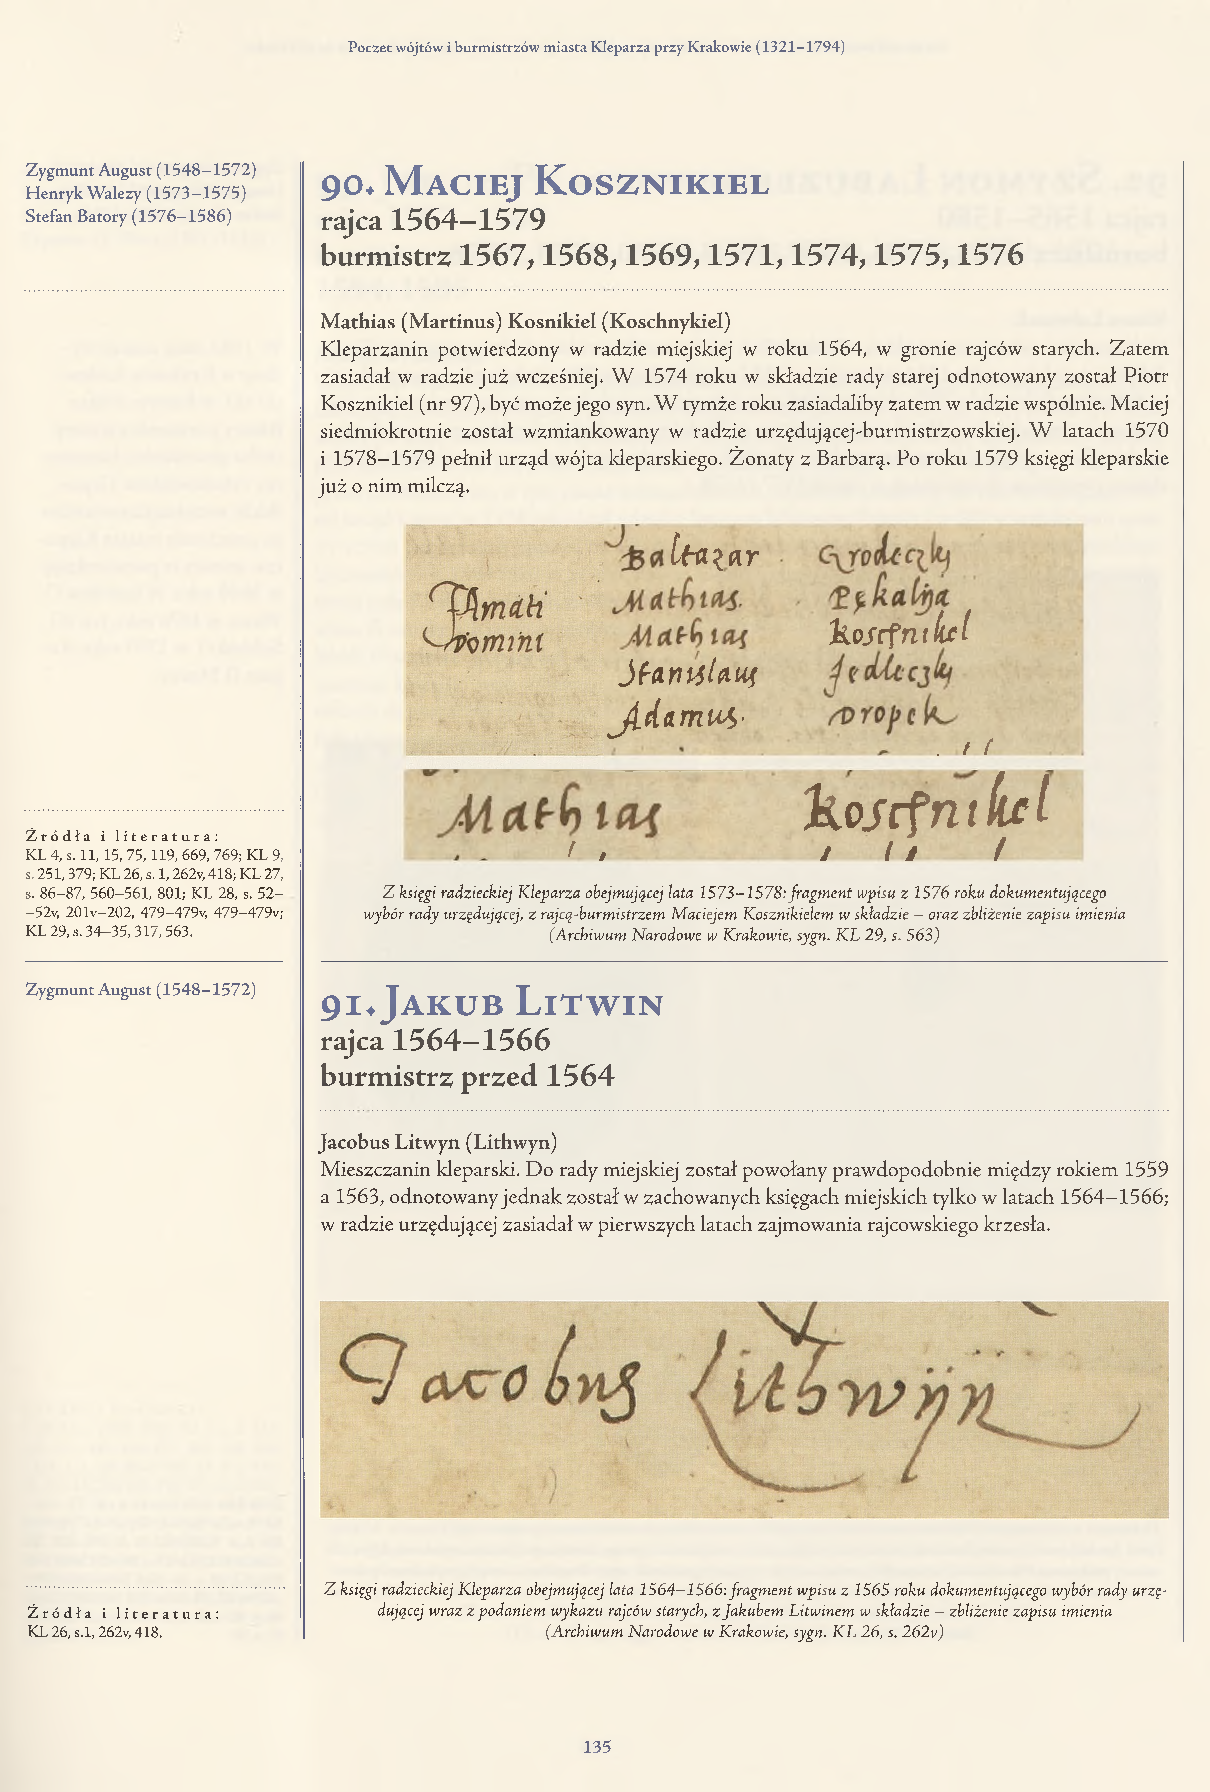 Poczet wójtów i burmistrzów miasta Kleparza przy Krakowie (1321–1794)
Zygmunt August (1548–1572)
Henryk Walezy (1573–1575)
Stefan Batory (1576–1586)
90. Maciej Kosznikiel
rajca 1564–1579
burmistrz 1567, 1568, 1569, 1571, 1574, 1575, 1576
Mathias (Martinus) Kosnikiel (Koschnykiel)
Kleparzanin potwierdzony w radzie miejskiej w roku 1564, w gronie rajców starych. Zatem
zasiadał w radzie już wcześniej. W 1574 roku w składzie rady starej odnotowany został Piotr
Kosznikiel (nr 97), być może jego syn. W tymże roku zasiadaliby zatem w radzie wspólnie. Maciej
siedmiokrotnie został wzmiankowany w radzie urzędującej-burmistrzowskiej. W latach 1570
i 1578–1579 pełnił urząd wójta kleparskiego. Żonaty z Barbarą. Po roku 1579 księgi kleparskie
już o nim milczą.
Baltazar Grodeczky
Amati Mathias Pękalya
Domini Mathias Koscfnikel
Stanislaus Jedleczky
Adamus Dropek
Mathias Koscfnikel
Z księgi radzieckiej Kleparza obejmującej lata 1573–1578: fragment wpisu z 1576 roku dokumentującego
wybór rady urzędującej, z rajcą-burmistrzem Maciejem Kosznikielem w składzie – oraz zbliżenie zapisu imienia
(Archiwum Narodowe w Krakowie, sygn. KL 29, s. 563)
Źródła i literatura:
KL 4, s. 11, 15, 75, 119, 669, 769; KL 9,
s. 251, 379; KL 26, s. 1, 262v, 418; KL 27,
s. 86–87, 560–561, 801; KL 28, s. 52–
–52v, 201v–202, 479–479v, 479–479v;
KL 29, s. 34–35, 317, 563.
Zygmunt August (1548–1572)
91. Jakub Litwin
rajca 1564–1566
burmistrz przed 1564
Jacobus Litwyn (Lithwyn)
Mieszczanin kleparski. Do rady miejskiej został powołany prawdopodobnie między rokiem 1559
a 1563, odnotowany jednak został w zachowanych księgach miejskich tylko w latach 1564–1566;
w radzie urzędującej zasiadał w pierwszych latach zajmowania rajcowskiego krzesła.
Jacobus Lithwijn
Z księgi radzieckiej Kleparza obejmującej lata 1564–1566: fragment wpisu z 1565 roku dokumentującego wybór rady urzę-
dującej wraz z podaniem wykazu rajców starych, z Jakubem Litwinem w składzie – zbliżenie zapisu imienia
(Archiwum Narodowe w Krakowie, sygn. KL 26, s. 262v)
Źródła i literatura:
KL 26, s.1, 262v, 418.
135